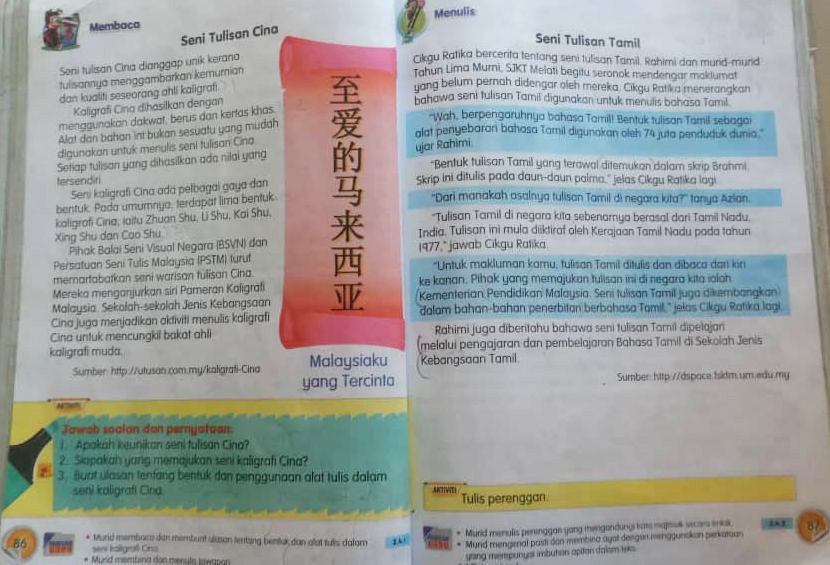 Membaca
Seni Tulisan Cina
Seni tulisan Cina dianggap unik kerana
tulisannya menggambarkan kemurnian
dan kualiti seseorang ahli kaligrafi.
Kaligrafi Cina dihasilkan dengan
menggunakan dakwat, berus dan kertas khas.
Alat dan bahan ini bukan sesuatu yang mudah
digunakan untuk menulis seni tulisan Cina.
Setiap tulisan yang dihasilkan ada nilai yang
tersendiri.
Seni kaligrafi Cina ada pelbagai gaya dan
bentuk. Pada umumnya, terdapat lima bentuk
kaligrafi Cina, iaitu Zhuan Shu, Li Shu, Kai Shu,
Xing Shu dan Cao Shu.
Pihak Balai Seni Visual Negara (BSVN) dan
Persatuan Seni Tulis Malaysia (PSTM) turut
memartabatkan seni warisan tulisan Cina.
Mereka menganjurkan siri Pameran Kaligrafi
Malaysia. Sekolah-sekolah Jenis Kebangsaan
Cina juga menjadikan aktiviti menulis kaligrafi
Cina untuk mencungkil bakat ahli
kaligrafi muda.
Sumber: http://utusan.com.my/kaligrafi-Cina
至爱的马来西亚
Malaysiaku
yang Tercinta
AKTIVITI
Jawab soalan dan pernyataan:
1. Apakah keunikan seni tulisan Cina?
2. Siapakah yang memajukan seni kaligrafi Cina?
3. Buat ulasan tentang bentuk dan penggunaan alat tulis dalam
seni kaligrafi Cina.
86
• Murid membaca dan membuat ulasan tentang bentuk dan alat tulis dalam
seni kaligrafi Cina.
• Murid membina dan menulis jawapan
Menulis
Seni Tulisan Tamil
Cikgu Ratika bercerita tentang seni tulisan Tamil. Rahimi dan murid-murid
Tahun Lima Murni, SJKT Melati begitu seronok mendengar maklumat
yang belum pernah didengar oleh mereka. Cikgu Ratika menerangkan
bahawa seni tulisan Tamil digunakan untuk menulis bahasa Tamil.
"Wah, berpengaruhnya bahasa Tamil! Bentuk tulisan Tamil sebagai
alat penyebaran bahasa Tamil digunakan oleh 74 juta penduduk dunia,"
ujar Rahimi.
"Bentuk tulisan Tamil yang terawal ditemukan dalam skrip Brahmi.
Skrip ini ditulis pada daun-daun palma," jelas Cikgu Ratika lagi.
"Dari manakah asalnya tulisan Tamil di negara kita?" tanya Azlan.
"Tulisan Tamil di negara kita sebenarnya berasal dari Tamil Nadu,
India. Tulisan ini mula diiktiraf oleh Kerajaan Tamil Nadu pada tahun
1977," jawab Cikgu Ratika.
"Untuk makluman kamu, tulisan Tamil ditulis dan dibaca dari kiri
ke kanan. Pihak yang memajukan tulisan ini di negara kita ialah
Kementerian Pendidikan Malaysia. Seni tulisan Tamil juga dikembangkan
dalam bahan-bahan penerbitan berbahasa Tamil," jelas Cikgu Ratika lagi.
Rahimi juga diberitahu bahawa seni tulisan Tamil dipelajari
melalui pengajaran dan pembelajaran Bahasa Tamil di Sekolah Jenis
Kebangsaan Tamil.
Sumber: http://dspace.fsktm.um.edu.my
AKTIVITI
Tulis perenggan.
• Murid menulis perenggan yang mengandungi kata majmuk secara imlak.
• Murid mengenal pasti dan membina ayat dengan menggunakan perkataan
yang mempunyai imbuhan apitan dalam teks.
87